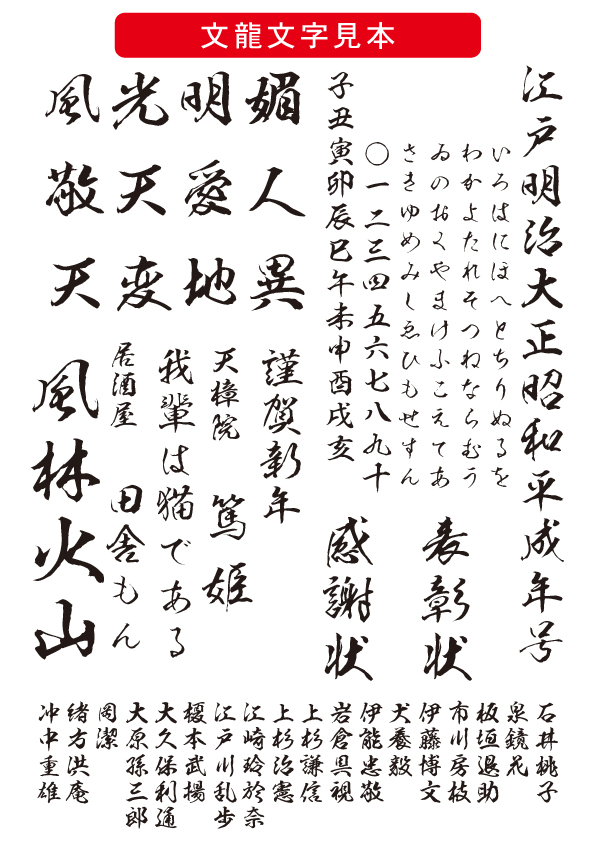 文龍文字見本
江戸明治大正昭和平成年号
いろはにほへとちりぬるを
わかよたれそつねならむう
ゐのおくやまけふこえてあ
さきゆめみしゑひもせすん
〇一二三四五六七八九十
子丑寅卯辰巳午未申酉戌亥
表彰状
感謝状
媚人異
明愛地
光天変
風敬天
謹賀新年
天樟院 篤姫
我輩は猫である
居酒屋 田舎もん
風林火山
石井桃子
泉鏡花
板垣退助
市川房枝
伊藤博文
犬養毅
伊能忠敬
岩倉具視
上杉謙信
上杉治憲
江崎玲於奈
江戸川乱歩
榎本武揚
大久保利通
大原孫三郎
岡潔
緒方洪庵
沖中重雄